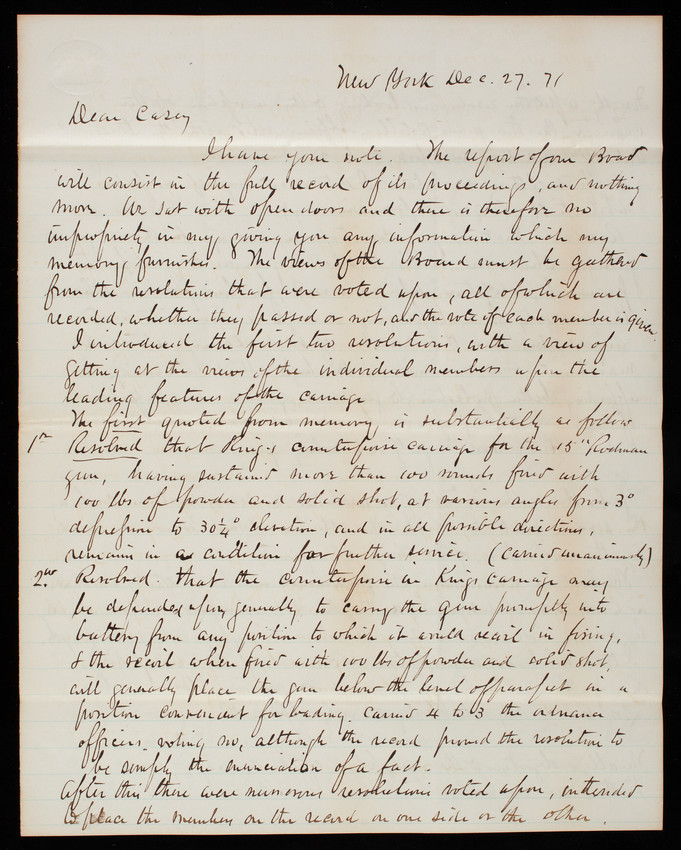 New York Dec. 27. 71
Dear Casey
I have your note. The report of our Board
will consist in the full record of its proceedings, and nothing
more. We sat with open doors and there is therefore no
impropriety in my giving you any information which my
memory furnishes. The views of the Board must be gathered
from the resolutions that were voted upon, all of which are
recorded, whether they passed or not, and the vote of each member is given.
I introduced the first two resolutions, with a view of
getting at the views of the individual members upon the
leading features of the carriage
The first quoted from memory is substantially as follow
1st Resolved that King's counterpoise carriage for the 15" Rodman
gun, having sustained more than 100 rounds fired with
100 lbs. of powder and solid shot, at various angles from 3°
depression to 30¼° elevation, and in all possible directions,
remains in a condition for further service. (Carried unanimously)
2nd Resolved. That the counterpoise in King's carriage may
be depended upon generally to carry the gun promptly into
battery from any position to which it would recoil in firing,
& the recoil when fired with 100 lbs of powder and solid shot,
will generally place the gun below the level of parapet in a
position convenient for loading. Carried 4 to 3 the ordnance
officers voting no, although the record proved the resolution to
be simply the enunciation of a fact.
After this there were numerous resolutions voted upon, intended
to place the members on the record on one side or the other.